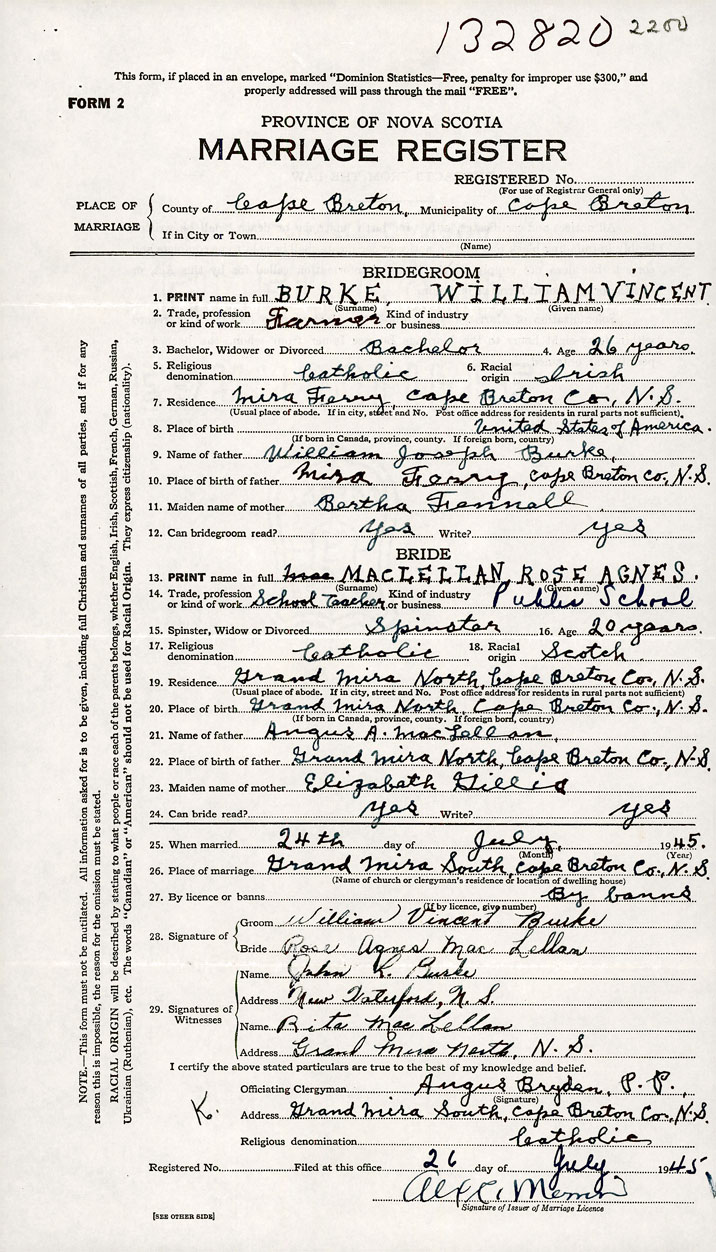 132820 2200
This form, if placed in an envelope, marked "Dominion Statistics—Free, penalty for improper use $300," and
properly addressed will pass through the mail "FREE".
FORM 2
PROVINCE OF NOVA SCOTIA
MARRIAGE REGISTER
REGISTERED No.
(For use of Registrar General only)
PLACE OF MARRIAGE
County of Cape Breton, Municipality of Cape Breton
If in City or Town
(Name)
BRIDEGROOM
1. PRINT name in full BURKE, WILLIAM VINCENT
(Surname) (Given name)
2. Trade, profession or kind of work Farmer Kind of industry or business
3. Bachelor, Widower or Divorced Bachelor 4. Age 26 years.
5. Religious denomination Catholic 6. Racial origin Irish
7. Residence Mira Ferry, Cape Breton Co., N.S.
(Usual place of abode. If in city, street and No. Post office address for residents in rural parts not sufficient).
8. Place of birth United States of America.
(If born in Canada, province, county. If foreign born, country)
9. Name of father William Joseph Burke,
10. Place of birth of father Mira Ferry, Cape Breton Co., N.S.
11. Maiden name of mother Bertha Fennell
12. Can bridegroom read? Yes Write? yes
BRIDE
13. PRINT name in full Mac MACLELLAN, ROSE AGNES.
(Surname) (Given name)
14. Trade, profession or kind of work School Teacher Kind of industry or business Public School
15. Spinster, Widow or Divorced Spinster 16. Age 20 years.
17. Religious denomination Catholic 18. Racial origin Scotch
19. Residence Grand Mira North, Cape Breton Co., N.S.
(Usual place of abode. If in city, street and No. Post office address for residents in rural parts not sufficient)
20. Place of birth Grand Mira North, Cape Breton Co., N.S.
(If born in Canada, province, county. If foreign born, country)
21. Name of father Angus A. MacLellan,
22. Place of birth of father Grand Mira North, Cape Breton Co., N.S.
23. Maiden name of mother Elizabeth Gillis
24. Can bride read? Yes Write? yes
25. When married 24th day of July, 1945.
(Month) (Year)
26. Place of marriage Grand Mira South, Cape Breton Co., N.S.
(Name of church or clergyman's residence or location of dwelling house)
27. By licence or banns By banns
(If by licence, give number)
28. Signature of
Groom William Vincent Burke
Bride Rose Agnes Mac Lellan
29. Signatures of Witnesses
Name John L. Burke
Address New Waterford, N.S.
Name Rita Mac Lellan
Address Grand Mira North, N.S.
I certify the above stated particulars are true to the best of my knowledge and belief.
Officiating Clergyman Angus Bryden, P.P.,
(Signature)
K. Address Grand Mira South, Cape Breton Co., N.S.
Religious denomination Catholic
Registered No. Filed at this office 26 day of July 1945
Signature of Issuer of Marriage Licence
[SEE OTHER SIDE]
NOTE.—This form must not be mutilated. All information asked for is to be given, including full Christian and surnames of all parties, and if for any
reason this is impossible, the reason for the omission must be stated.
RACIAL ORIGIN will be described by stating to what people or race each of the parents belongs, whether English, Irish, Scottish, French, German, Russian,
Ukrainian (Ruthenian), etc. The words "Canadian" or "American" should not be used for Racial Origin. They express citizenship (nationality).